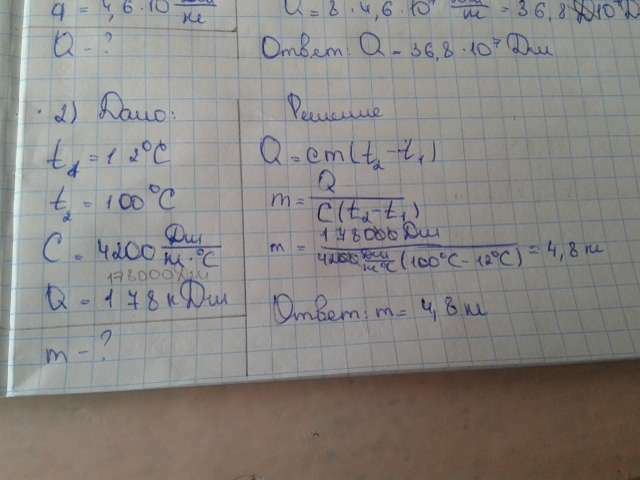 q = 4,6·10 Дж/кг
Q - ?
Q = 8 · 4,6 · 10⁷ Дж/кг = 36,8 · 10⁷ Д
Ответ: Q = 36,8·10⁷ Дж
2) Дано:
t₁ = 12°C
t₂ = 100°C
C = 4200 Дж/кг·°C
178000 Дж
Q = 178 кДж
m - ?
Решение
Q = cm(t₂ - t₁)
m = Q/C(t₂-t₁)
m = 178000 Дж/4200 Дж/кг·°C (100°C - 12°C) = 4,8 кг
Ответ: m = 4,8 кг